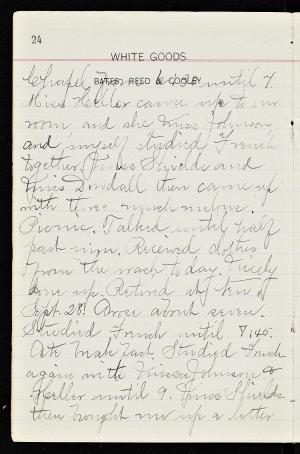 24
WHITE GOODS.
BATES, REED & COOLEY
Chapel until 7.
Miss Heller came up to our
room, and she Miss Johnson
and myself studied French
together. Miss Shields and
Miss Dondall then came up
with three muskmelons.
Picnic. Talked until half
past nine. Received clothes
from the wash to day. Nicely
done up. Retired at ten
Sept. 28! Arose about seven.
Studied French until 7.45.
Ate breakfast. Studied French
again with Misses Johnson &
Heller until 9. Miss Shields
then brought me up a letter